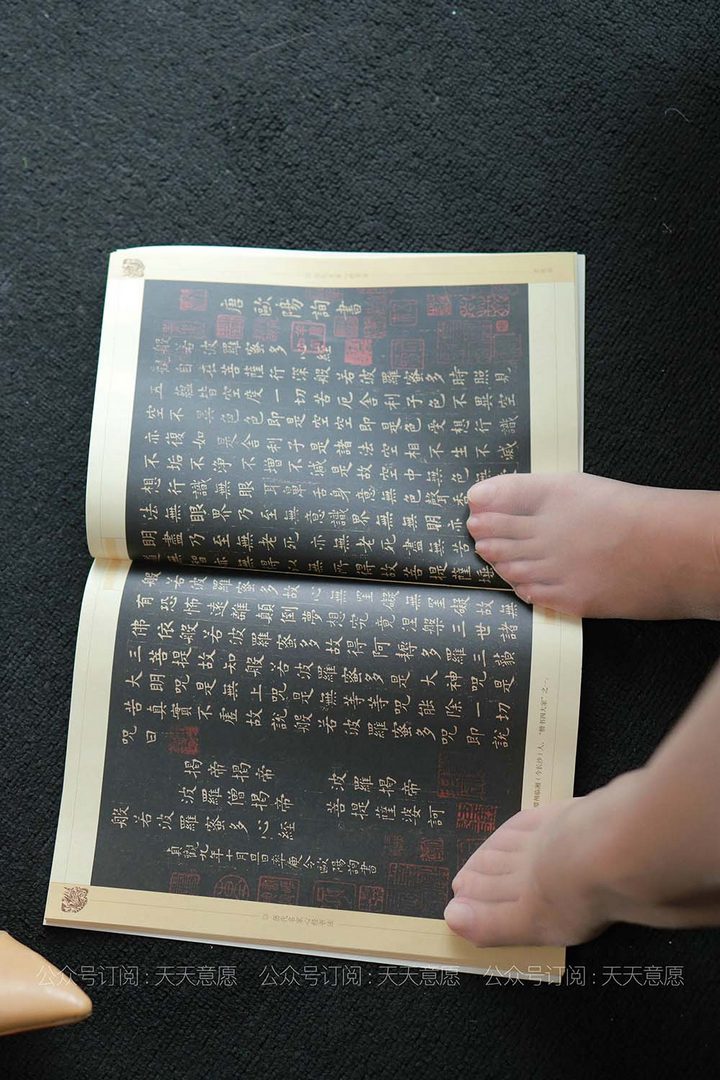 唐歐陽詢書
般若波羅蜜多心經
觀自在菩薩行深般若波羅蜜多時照見
五蘊皆空度一切苦厄舍利子色不異空
空不異色色即是空空即是色受想行識
亦復如是舍利子是諸法空相不生不滅
不垢不淨不增不減是故空中無色無
想行識無眼耳鼻舌身意無色聲香
法無眼界乃至無意識界無無明亦
無明盡乃至無老死亦無老死盡無苦
道無智亦無得以無所得故菩提薩埵
般若波羅蜜多故心無罣礙無罣礙故無
有恐怖遠離顛倒夢想究竟涅槃三世諸
佛依般若波羅蜜多故得阿耨多羅三藐
三菩提故知般若波羅蜜多是大神咒是
大明咒是無上咒是無等等咒能除一切
苦真實不虛故說般若波羅蜜多咒即說
咒曰
揭帝揭帝 波羅揭帝
波羅僧揭帝 菩提薩婆訶
般若波羅蜜多心經
貞觀九年十月旦日率更令歐陽詢書
公众号订阅：天天意愿 公众号订阅：天天意愿 公众号订阅：天天意愿